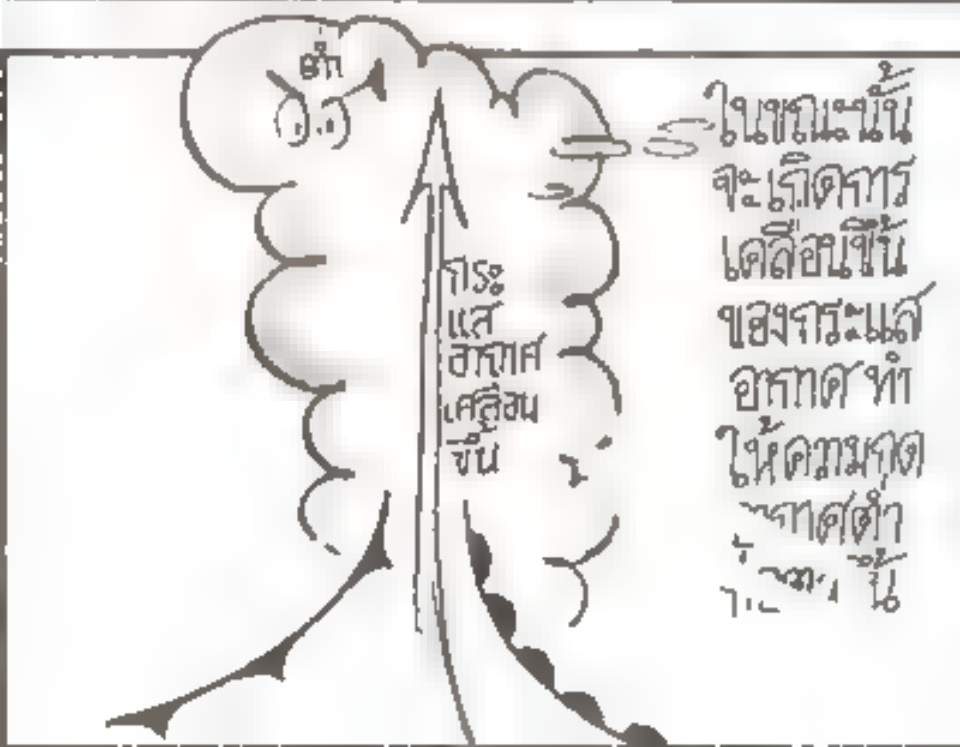 ฮึ่ก
กระ
แส
อากาศ
เคลื่อน
ขึ้น
ในขณะนั้น
จะเกิดการ
เคลื่อนขึ้น
ของกระแส
อากาศ ทำ
ให้ความกด
อากาศต่ำ